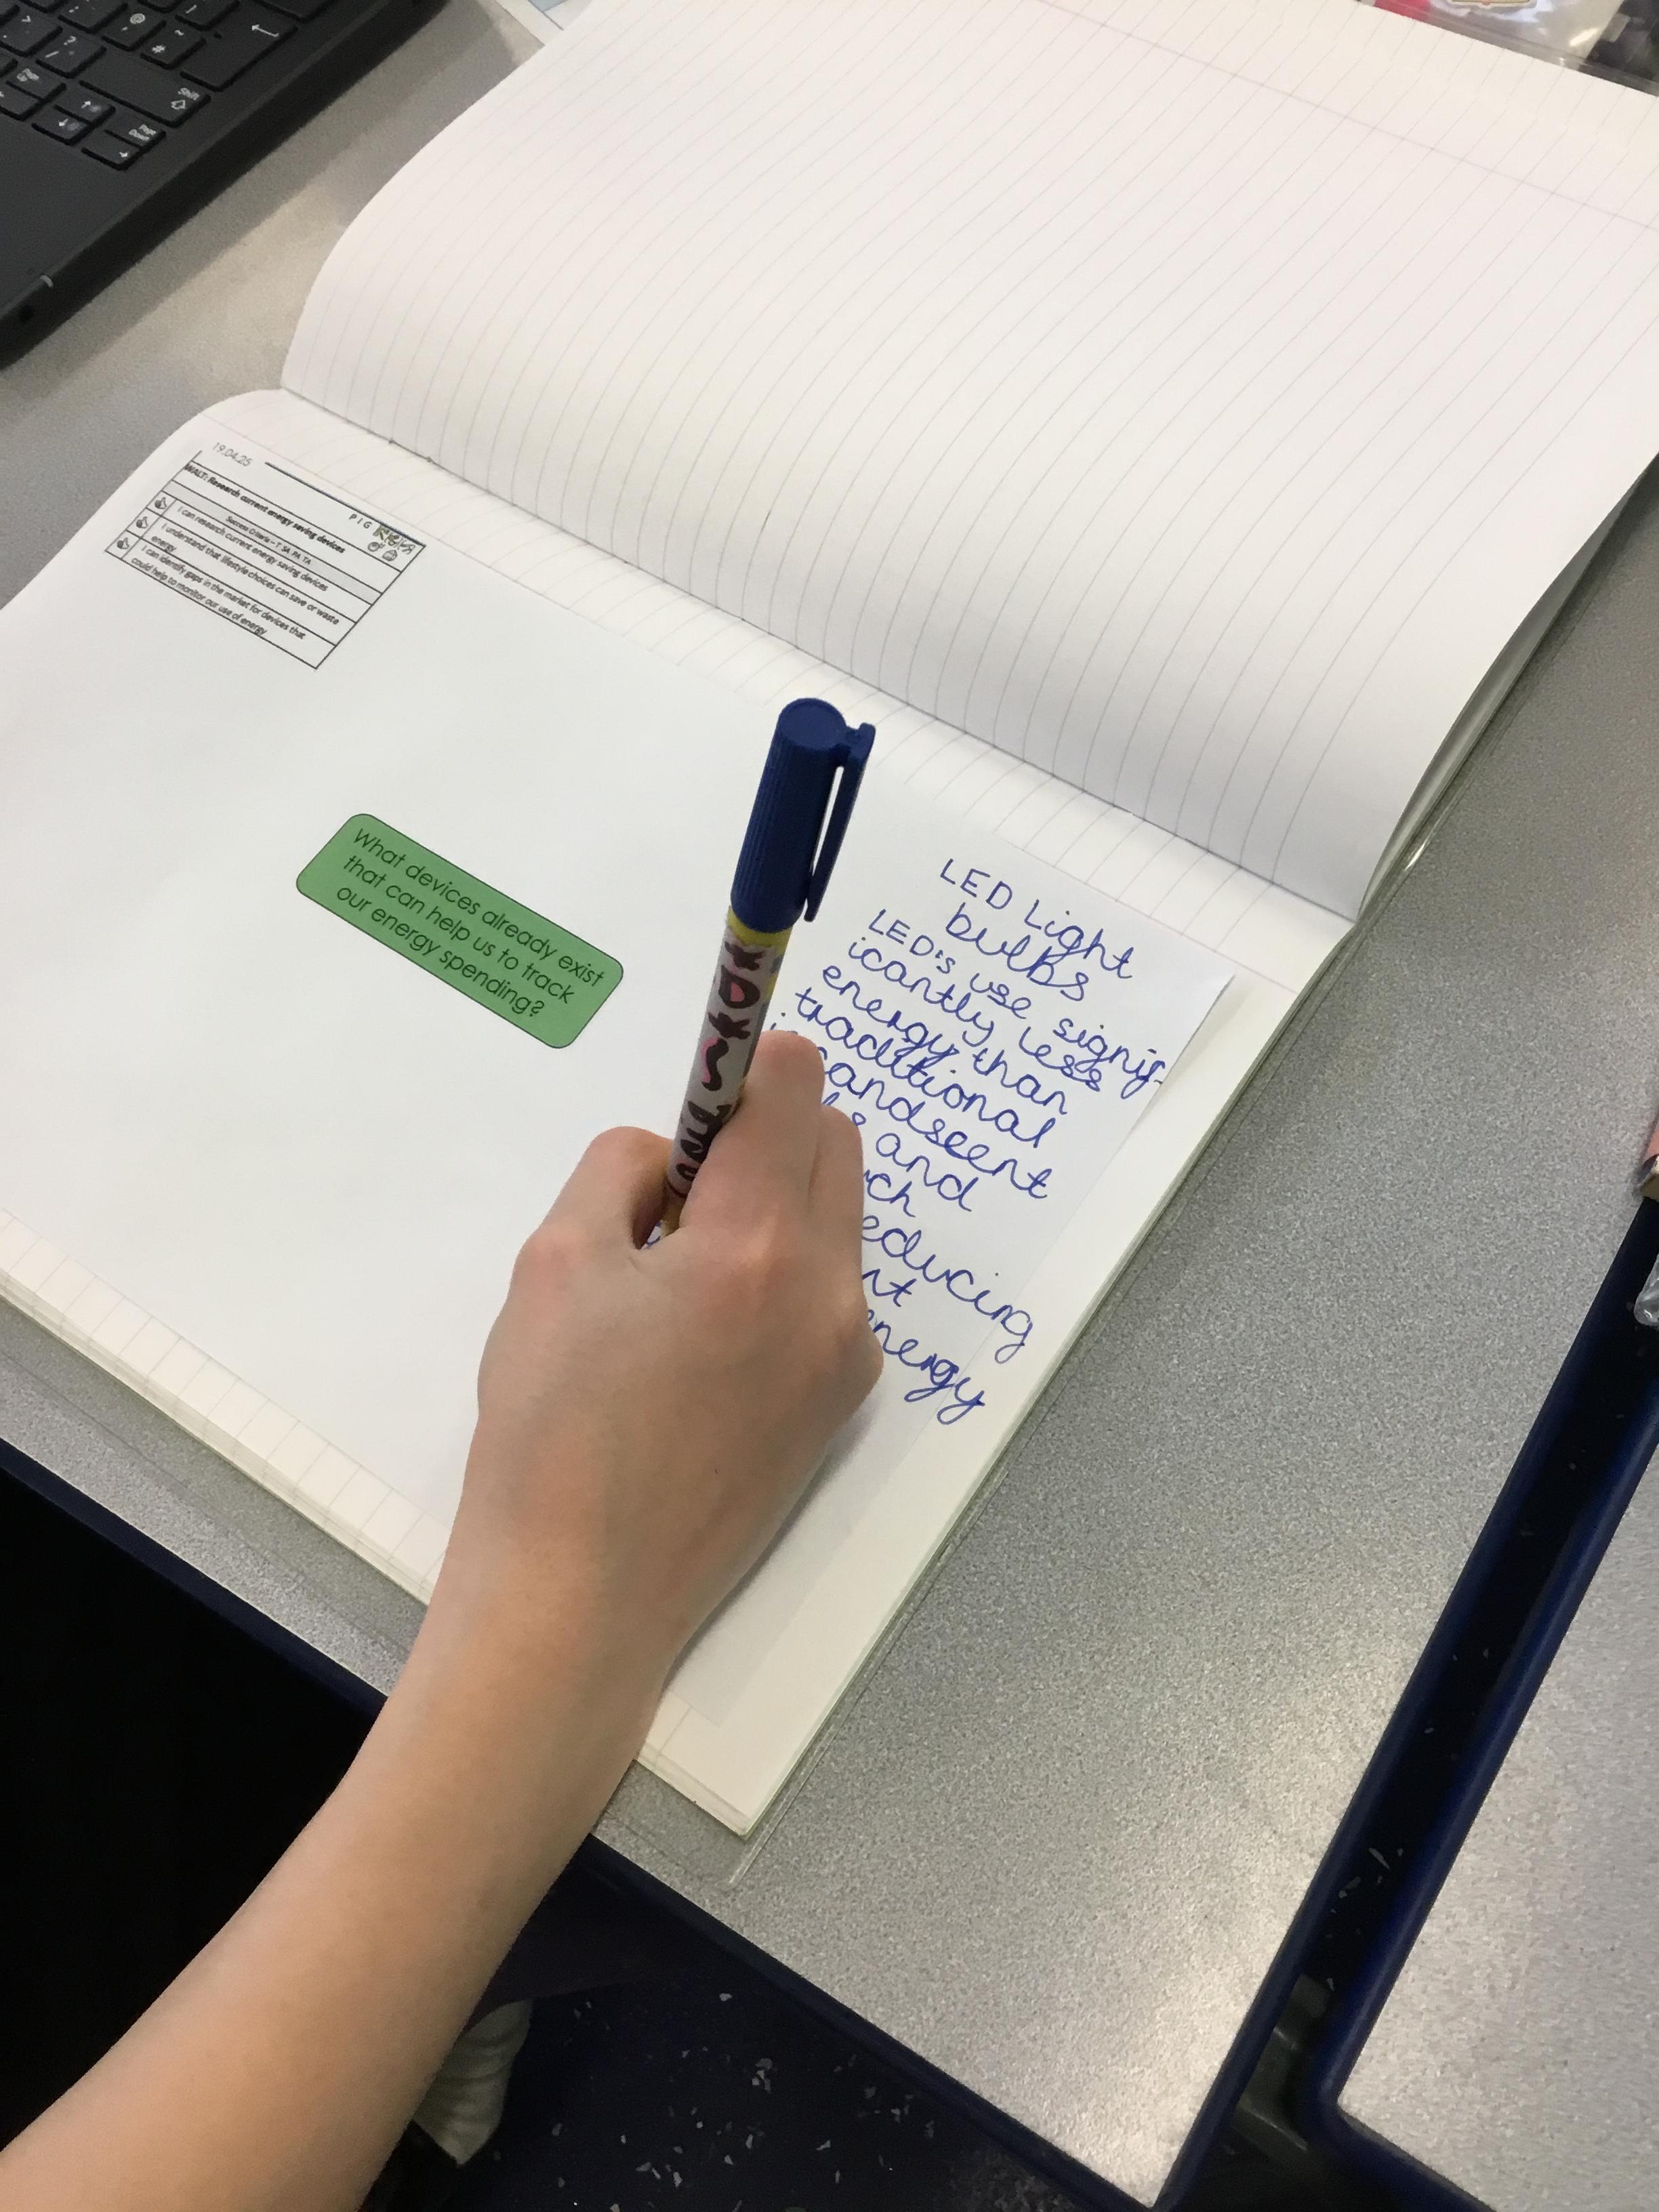 19.04.25
WALT: Research current energy saving devices
P I G
Success Criteria – T, SA, PA, TA
I can research current energy saving devices
I understand that lifestyle choices can save or waste
energy
I can identify gaps in the market for devices that
could help to monitor our use of energy
What devices already exist
that can help us to track
our energy spending?
LED Light
bulbs
LED's use signif-
icantly less
energy than
traditional
candscent
and
educing
energy
Shift
Page
Down